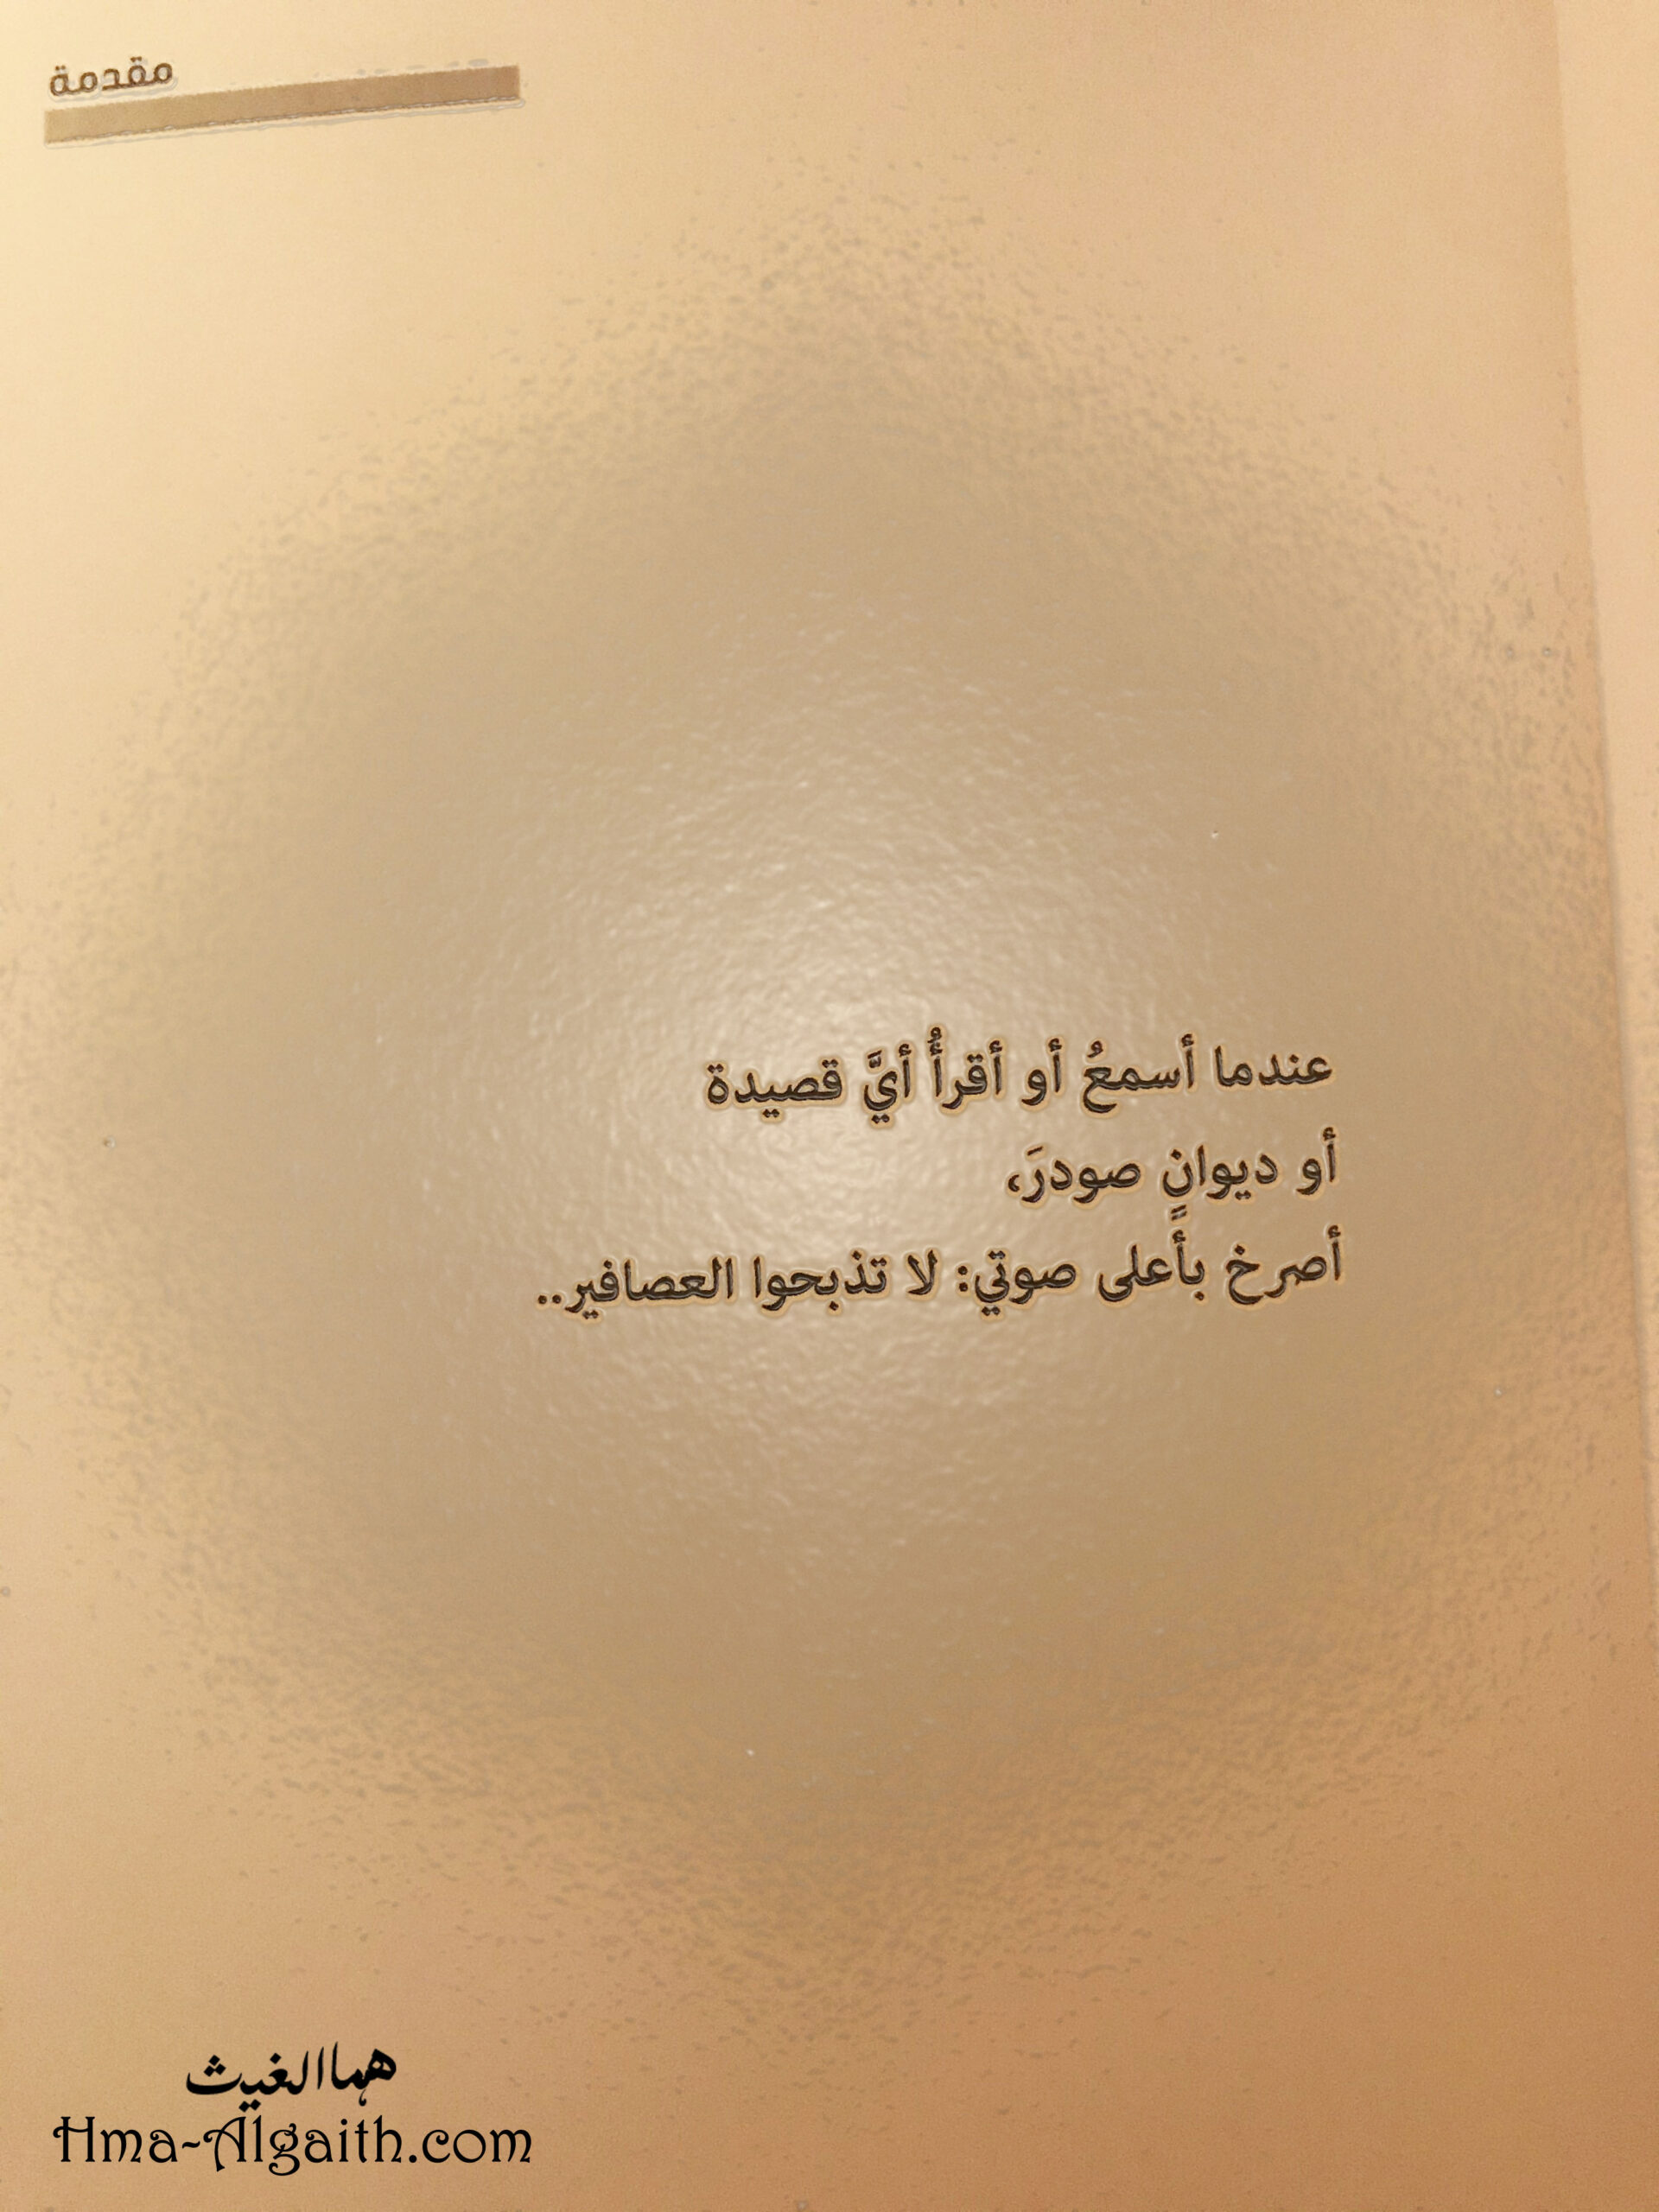 مقدمة
عندما أسمعُ أو أقرأُ أيَّ قصيدة
أو ديوانٍ صودرَ،
أصرخ بأعلى صوتي: لا تذبحوا العصافير..
هما الغيث
Hma-Algaith.com